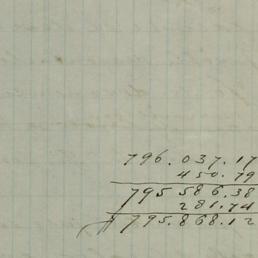 796.037.17
450.79
795 586.38
281.74
795.868.12